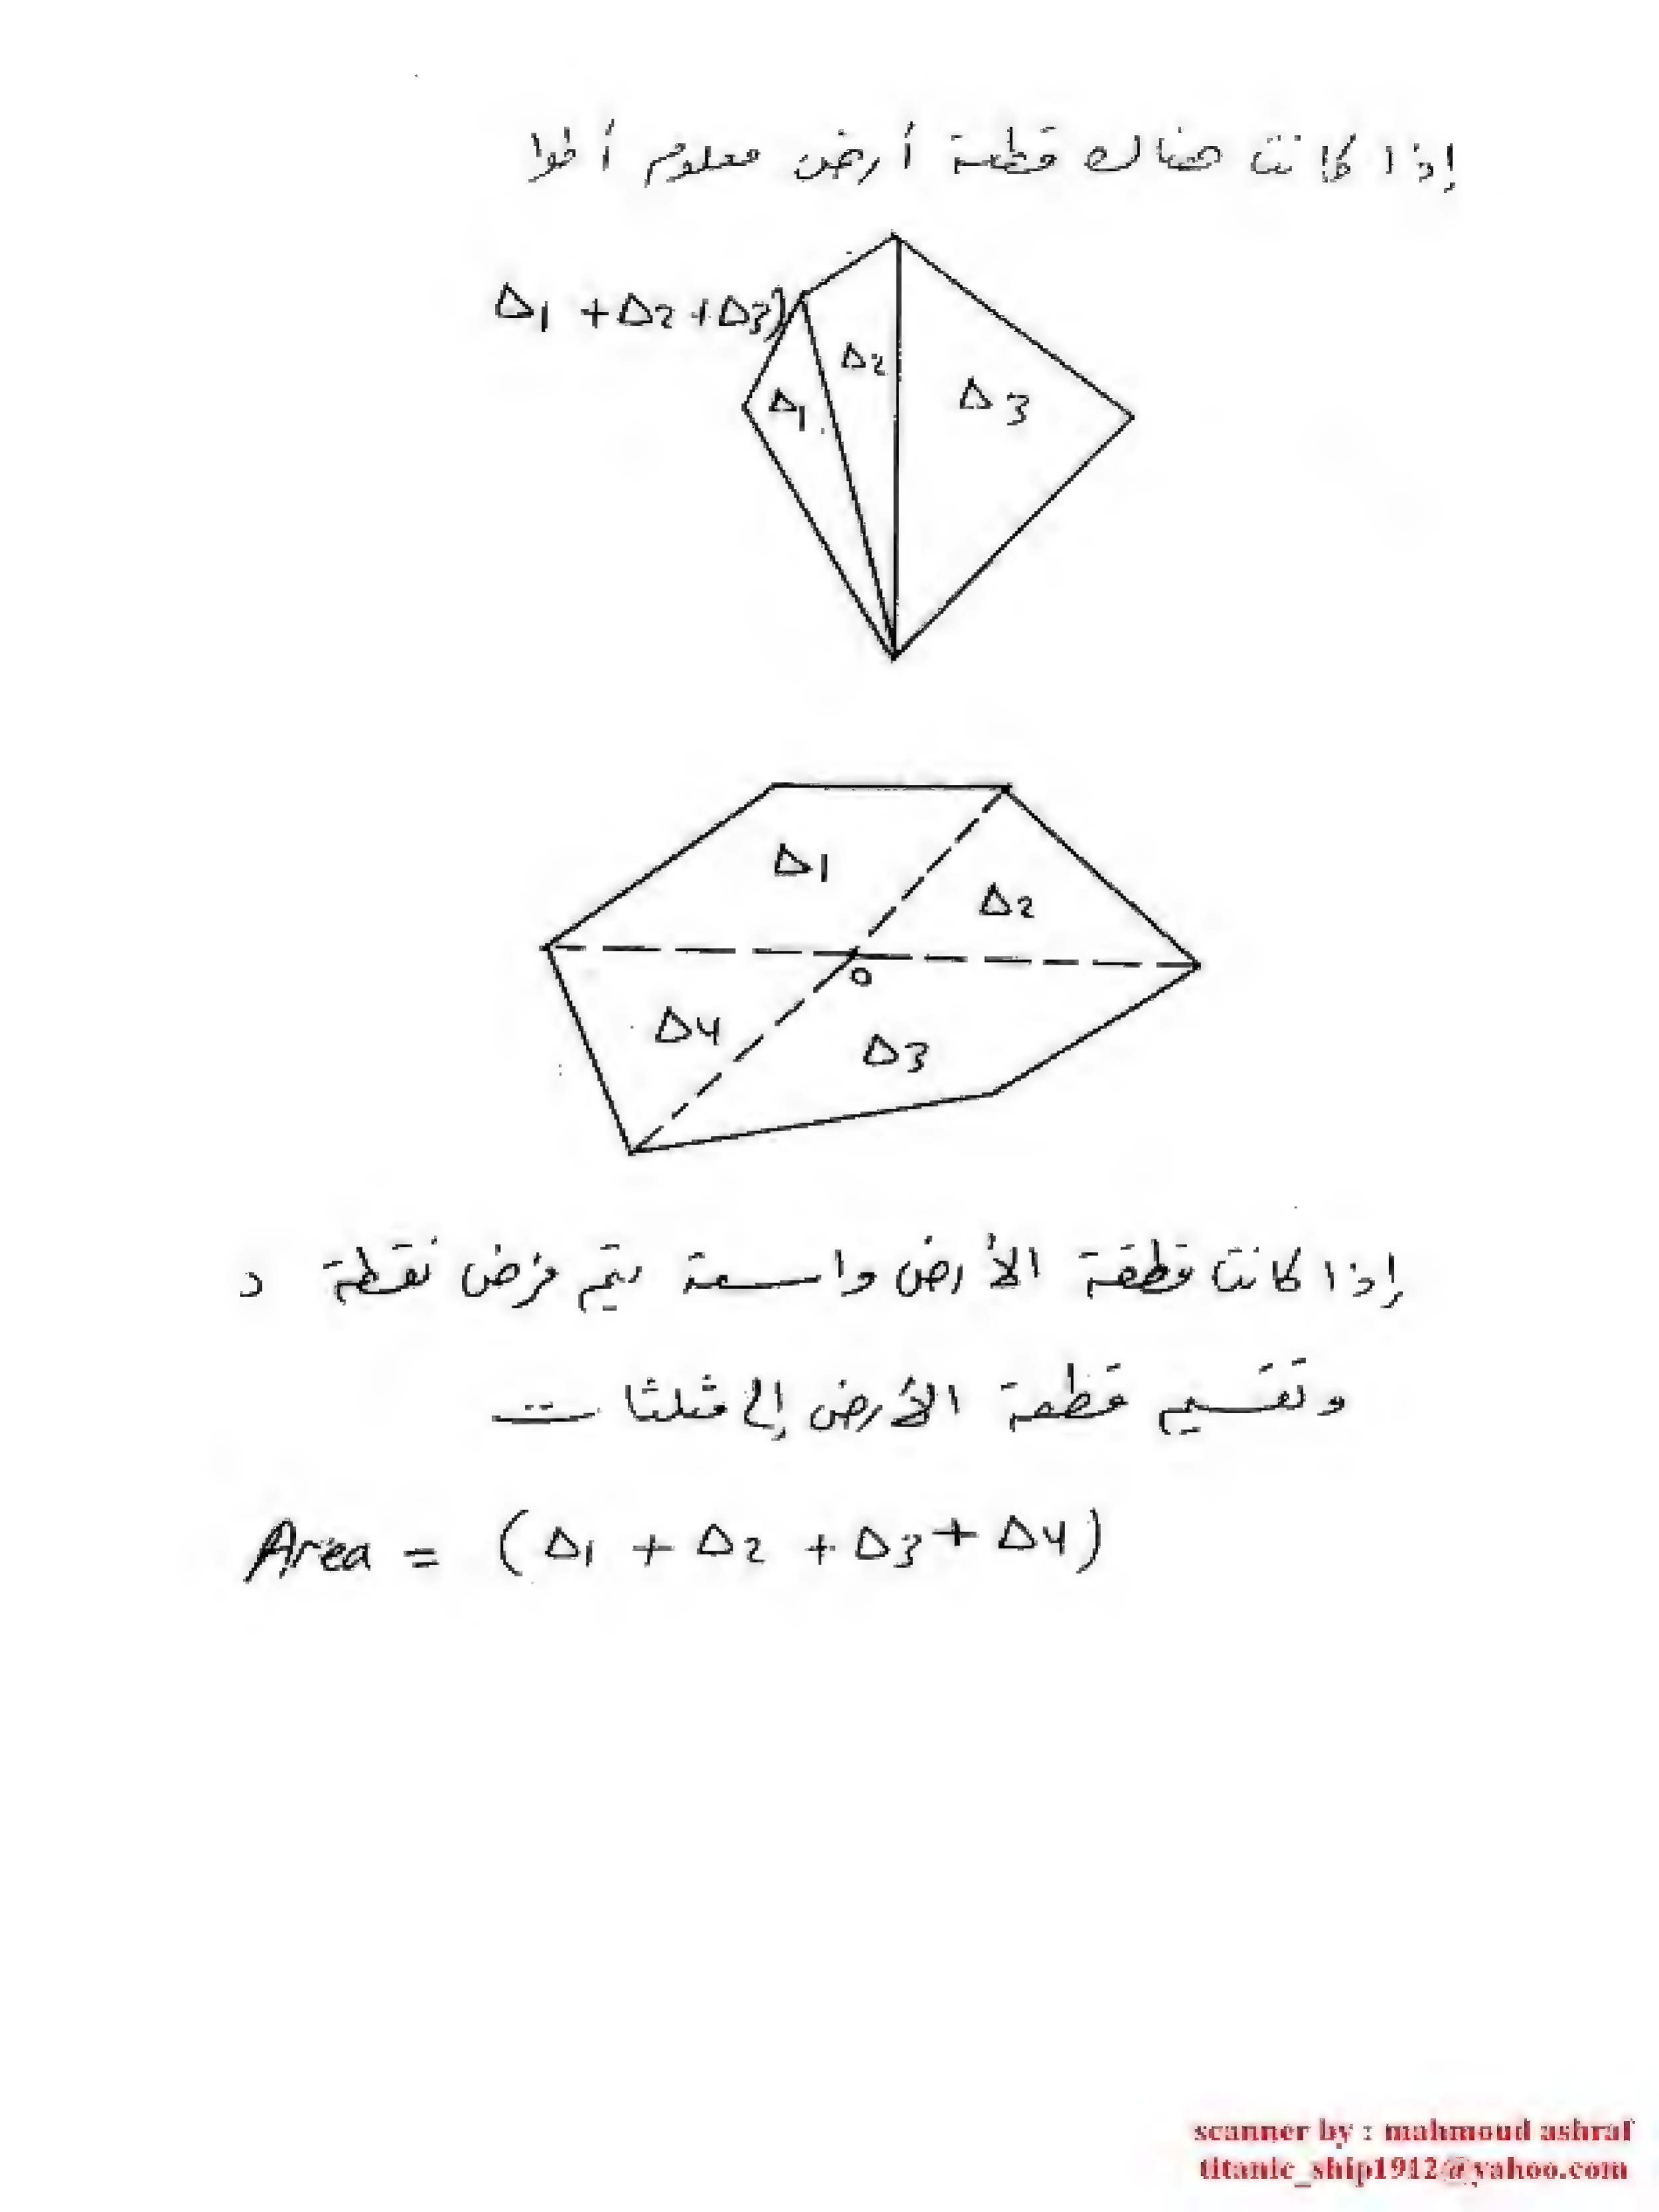 إذا كانت هناك قطعة أرض معلوم أطوا
Δ1 +Δ2 +Δ3)
Δ2
Δ1
Δ3
Δ1
Δ2
o
Δ4
Δ3
إذا كانت قطقة الأرض واسعة يتم فرض نقطة د
وتقسيم قطعة الأرض إلى مثلثات
Area = (Δ1 + Δ2 + Δ3 + Δ4)
scanner by : mahmoud ashraf
titanic_ship1912@yahoo.com